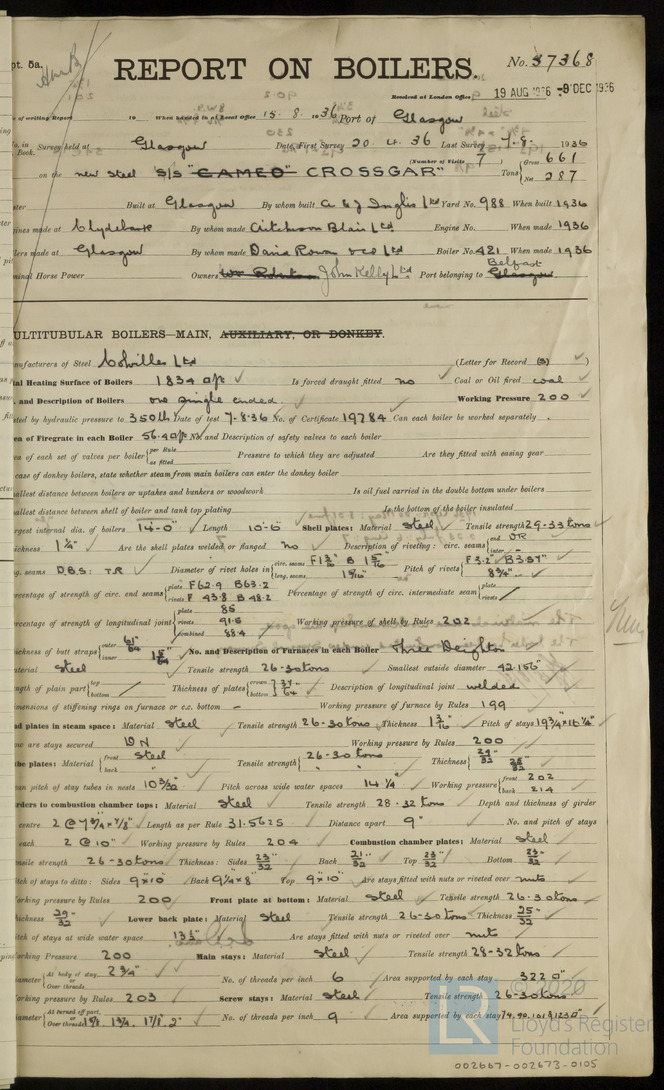 pt. 5a.
REPORT ON BOILERS.
No. 37368
Received at London Office 19 AUG 1936 -9 DEC 1936
of writing Report 19 When handed in at Local Office 15. 8. 1936 Port of Glasgow
Book. Survey held at Glasgow Date, First Survey 20. 4. 36 Last Survey 7. 8. 1936
on the new steel S/S "CAMEO" CROSSGAR" (Number of Visits 7) Tons Gross 661 Net 287
Built at Glasgow By whom built A & J Inglis Ltd Yard No. 988 When built 1936
made at Clydebank By whom made Aitchison Blair Ltd Engine No. When made 1936
made at Glasgow By whom made David Rowan & Co Ltd Boiler No. 421 When made 1936
Horse Power Owners Wm Robertson John Kelly Ltd Port belonging to Glasgow Belfast
ULTITUBULAR BOILERS—MAIN, AUXILIARY, OR DONKEY.
nufacturers of Steel Colvilles Ltd (Letter for Record (S))
Heating Surface of Boilers 1834 Is forced draught fitted no Coal or Oil fired coal
and Description of Boilers one single ended. Working Pressure 200
ted by hydraulic pressure to 350 lb Date of test 7-8-36 No. of Certificate 19784 Can each boiler be worked separately .
of Firegrate in each Boiler 56.40 No. and Description of safety valves to each boiler
of each set of valves per boiler per Rule as fitted Pressure to which they are adjusted Are they fitted with easing gear
case of donkey boilers, state whether steam from main boilers can enter the donkey boiler
allest distance between boilers or uptakes and bunkers or woodwork Is oil fuel carried in the double bottom under boilers
allest distance between shell of boiler and tank top plating Is the bottom of the boiler insulated
rgest internal dia. of boilers 14'-0" Length 10'-6" Shell plates: Material Steel Tensile strength 29-33 tons
ickness 1 1/4" Are the shell plates welded or flanged no Description of riveting: circ. seams end DR inter. -
seams D.B.S: T.R Diameter of rivet holes in circ. seams long. seams Pitch of rivets F 3.2" B 3.57" 8 3/4"
rcentage of strength of circ. end seams plate F 62.9 B 63.2 rivets F 43.8 B 48.2 Percentage of strength of circ. intermediate seam plate rivets
rcentage of strength of longitudinal joint plate 85 rivets 91.5 combined 88.4 Working pressure of shell by Rules 202
ickness of butt straps outer 61/64 inner No. and Description of Furnaces in each Boiler Three Deighton
aterial Steel Tensile strength 26-30 tons Smallest outside diameter 42.156"
ngth of plain part top bottom Thickness of plates crown bottom 37/64 Description of longitudinal joint welded
mensions of stiffening rings on furnace or c.c. bottom - Working pressure of furnace by Rules 199
d plates in steam space: Material Steel Tensile strength 26-30 tons Thickness 1 3/16" Pitch of stays 19 3/4" x 16 1/4"
are stays secured DN Working pressure by Rules 200
be plates: Material front Steel back " Tensile strength 26-30 tons " Thickness 29/32 25/32
an pitch of stay tubes in nests 10 3/32 Pitch across wide water spaces 14 1/4" Working pressure front 202 back 214
rders to combustion chamber tops: Material Steel Tensile strength 28-32 tons Depth and thickness of girder
centre 2 @ 7 3/4" x 7/8" Length as per Rule 31.5625 Distance apart 9" No. and pitch of stays
each 2 @ 10" Working pressure by Rules 204 Combustion chamber plates: Material Steel
nsile strength 26-30 tons Thickness: Sides 23/32 Back 21/32 Top 23/32 Bottom 23/32
itch of stays to ditto: Sides 9" x 10" Back 9 1/4" x 8" Top 9" x 10" Are stays fitted with nuts or riveted over nuts
orking pressure by Rules 200 Front plate at bottom: Material Steel Tensile strength 26-30 tons
hickness 29/32 Lower back plate: Material Steel Tensile strength 26-30 tons Thickness 25/32
itch of stays at wide water space Are stays fitted with nuts or riveted over nuts
orking Pressure 200 Main stays: Material Steel Tensile strength 28-32 tons
ameter At body of stay, or Over threads 2 3/4" No. of threads per inch 6 Area supported by each stay 322
orking pressure by Rules 203 Screw stays: Material Steel Tensile strength 26-30 tons
ameter At turned off part, or Over threads 1 3/4, 1 7/8, 2" No. of threads per inch 9 Area supported by each stay
© 2020
LR
Lloyd's Register
Foundation
002667-002673-0105